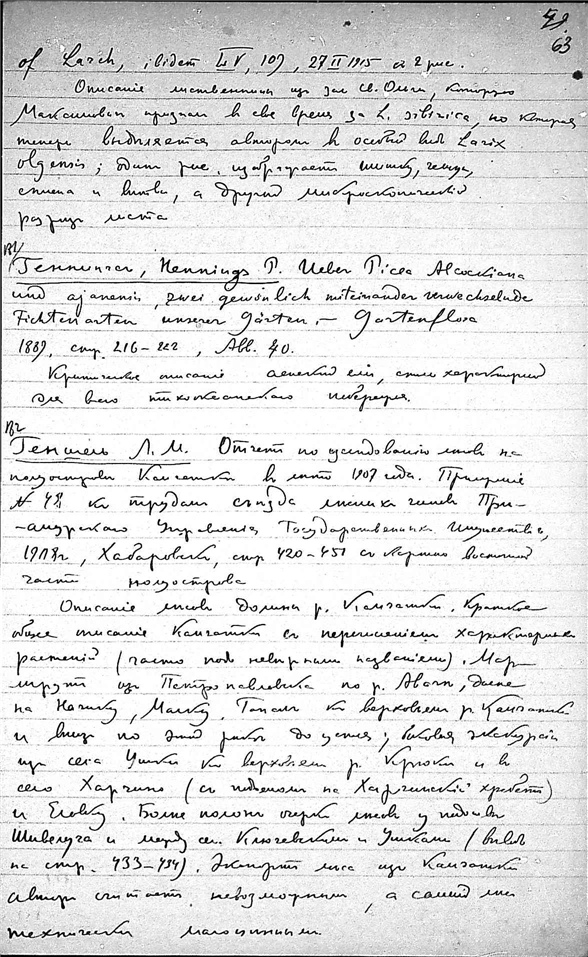 63
of Larch, ibidem LV, 109, 27 II 1915 с 2 рис.
Описание лиственницы из зал св. Ольги, которую
Максимович признал в свое время за L. sibirica, но которая
теперь выделяется автором в особый вид Larix
olgensis; один рис. изображает шишку, чешуи,
семена и ветви, а другой микроскопический
разрез листа
181/
Геннингс, Hennings P. Ueber Picea Alcockiana
und ajanensis, zwei gewönlich miteinander verwechselnde
Fichtenarten unserer Gärten. – Gartenflora
1889, стр. 216–222, Abb. 40.
Критическое описание аянской ели, столь характерной
для всего тихоокеанского побережья.
182
Геншель Л. М. Отчет по исследованию лесов на
полуострове Камчатка в лето 1909 года. Приложение
N 42 к трудам съезда лесных чинов При-
-амурского Управления Государственных Имуществ,
Хабаровск, стр 420–451 с картою восточной
части полуострова
Описание лесов долины р. Камчатки. Краткое
общее описание Камчатки с перечислением характерных
растений (часто под неверными названиями). Мар-
шрут из Петропавловска по р. Авачи, далее
на Начику, Малку, Ганалы к верховьям р Камчатки
и вниз по этой реке до устья; боковая экскурсия
из села Ушки к верховьям р. Крюки и в
село Харчино (с подъемом на Харчинский хребет)
и Еловку. Более полный очерк лесов у подошвы
Шивелуча и между сел. Ключевским и Ушками (вывод
на стр. 433–434). Экспорт леса из Камчатки
автор считает невозможным, а самый лес
технически малоценным.